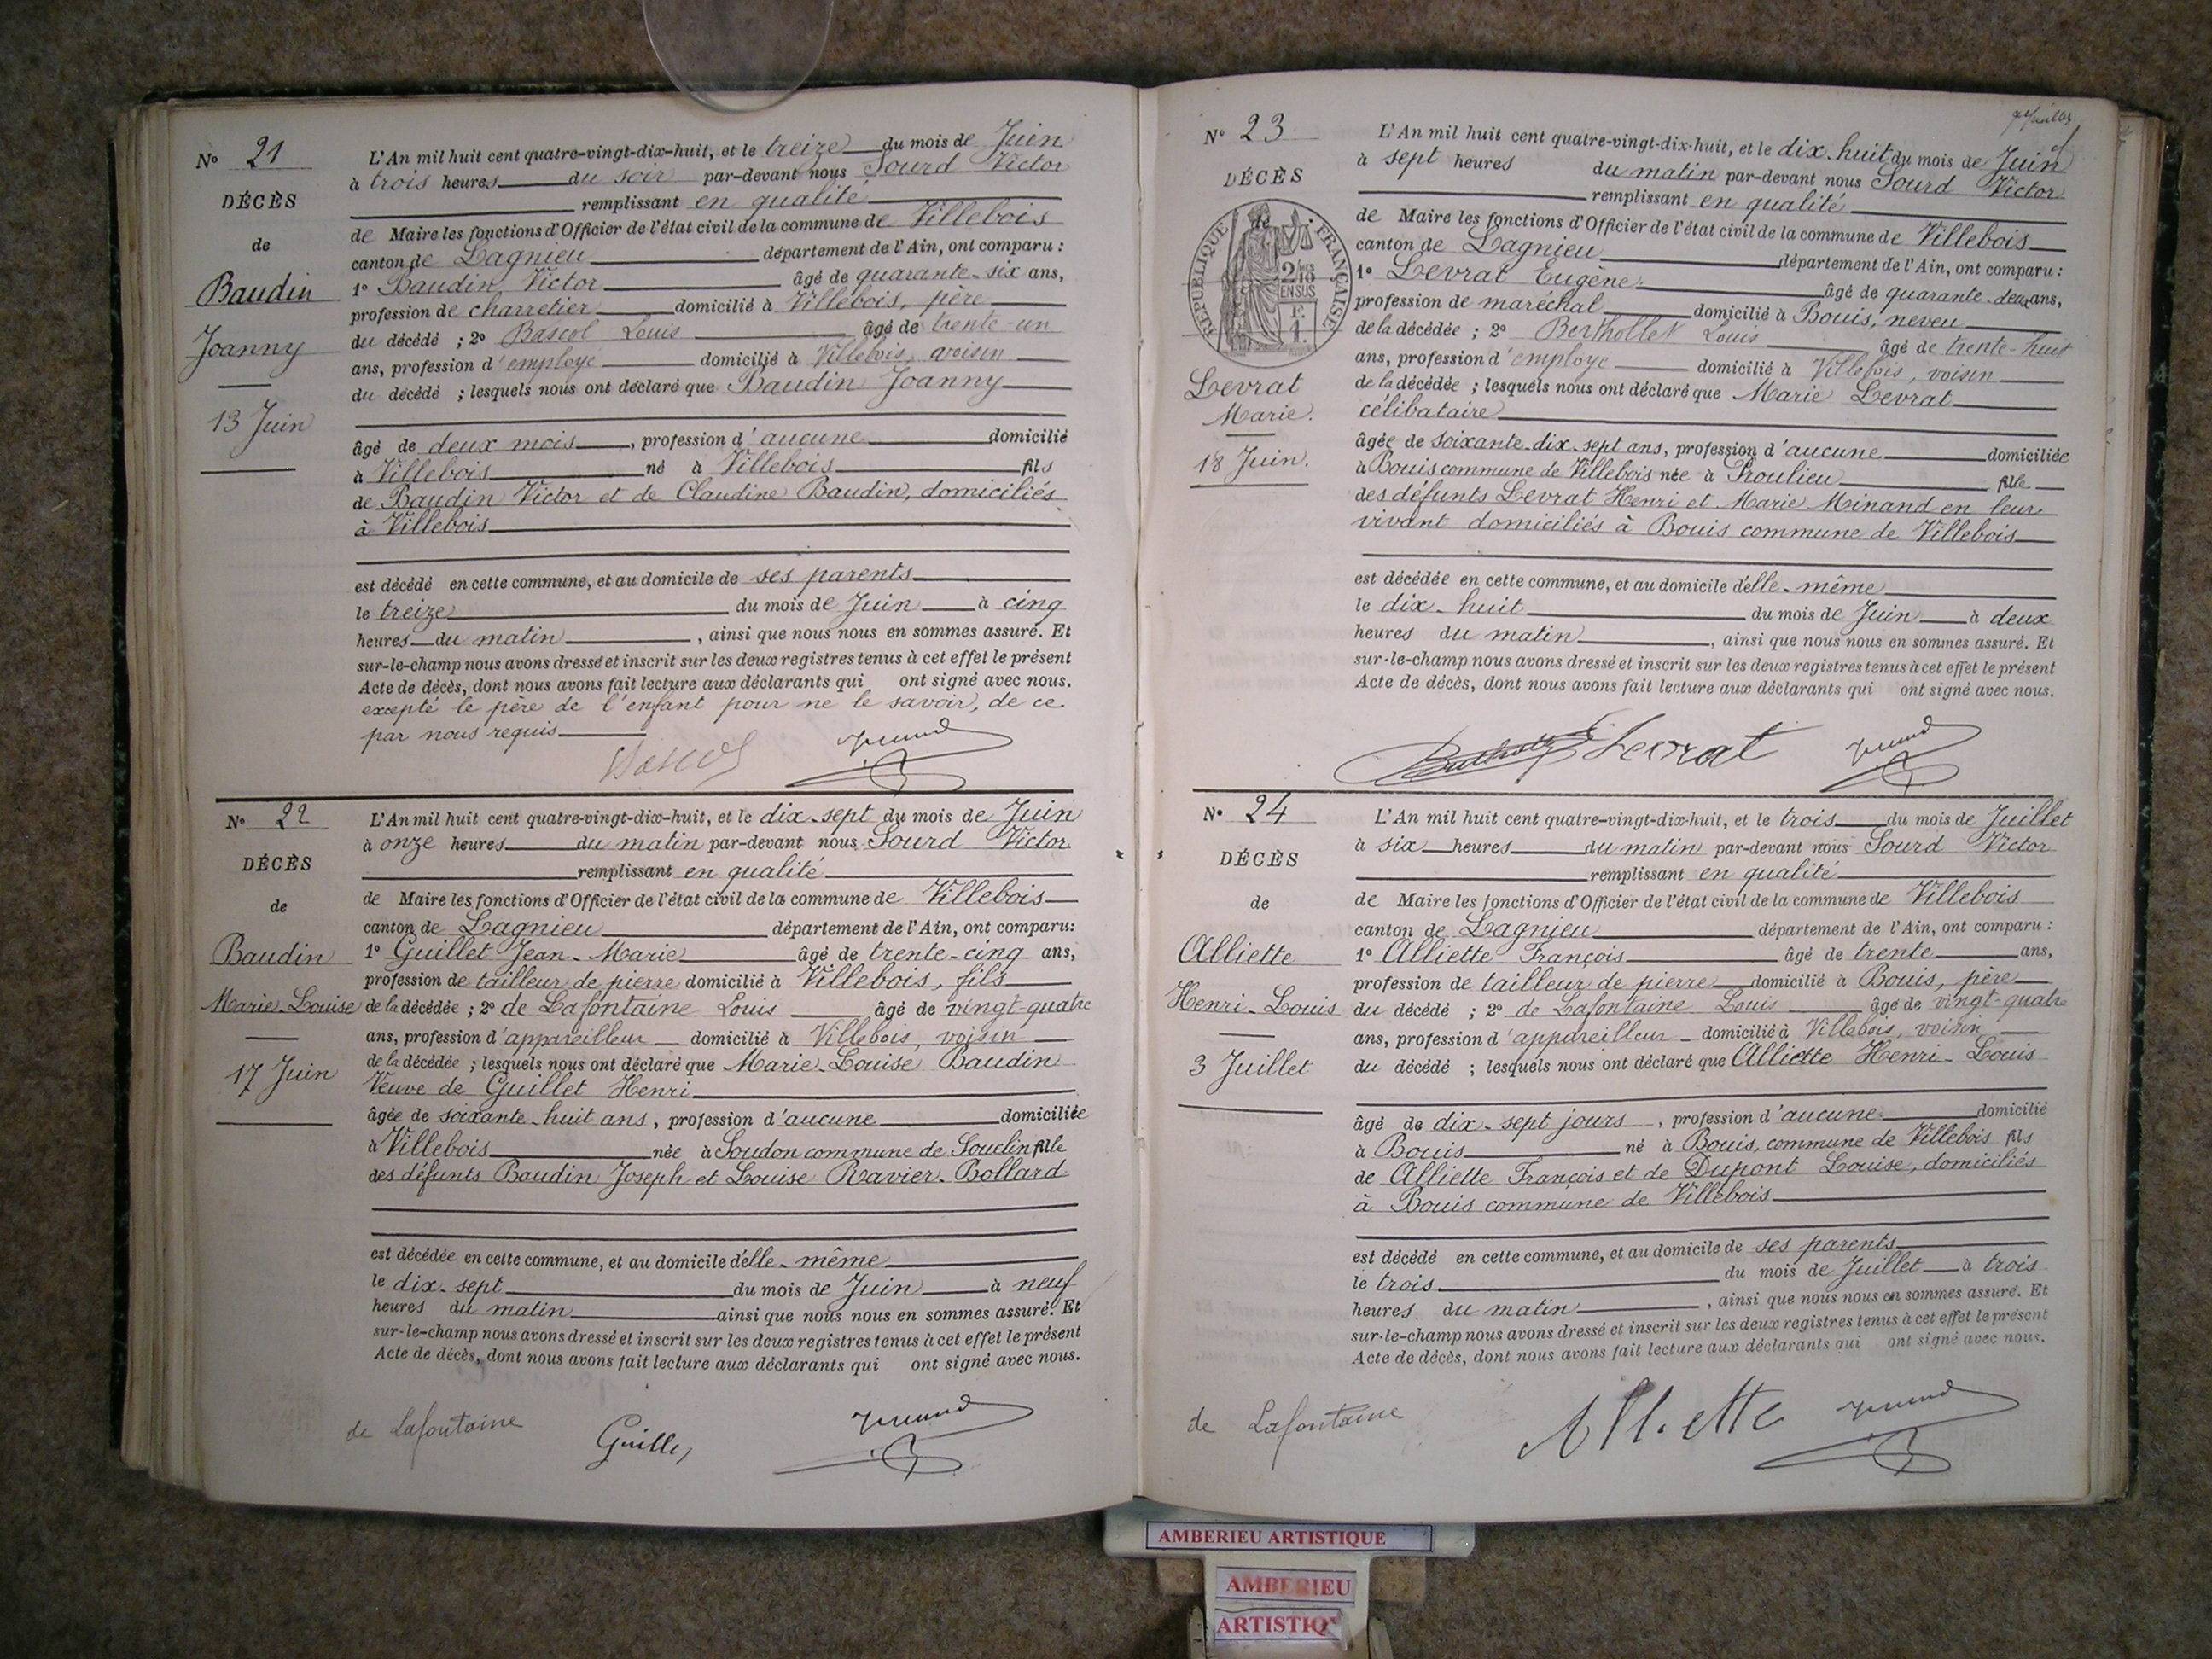 N° 21
DÉCÈS
de
Baudin
Joanny
13 Juin
L'An mil huit cent quatre-vingt-dix-huit, et le treize du mois de Juin
à trois heures du soir par-devant nous Sourd Victor
remplissant en qualité
de Maire les fonctions d'Officier de l'état civil de la commune de Villebois
canton de Lagnieu département de l'Ain, ont comparu :
1° Baudin Victor âgé de quarante-six ans,
profession de charretier domicilié à Villebois, père
du décédé ; 2° Bascol Louis âgé de trente-un
ans, profession d'employé domicilié à Villebois, voisin
du décédé ; lesquels nous ont déclaré que Baudin Joanny
âgé de deux mois, profession d'aucune domicilié
à Villebois né à Villebois fils
de Baudin Victor et de Claudine Baudin, domiciliés
à Villebois
est décédé en cette commune, et au domicile de ses parents
le treize du mois de Juin à cinq
heures du matin, ainsi que nous nous en sommes assuré. Et
sur-le-champ nous avons dressé et inscrit sur les deux registres tenus à cet effet le présent
Acte de décès, dont nous avons fait lecture aux déclarants qui ont signé avec nous.
excepté le père de l'enfant pour ne le savoir, de ce
par nous requis
Bascol
N° 22
DÉCÈS
de
Baudin
Marie-Louise
17 Juin
L'An mil huit cent quatre-vingt-dix-huit, et le dix-sept du mois de Juin
à onze heures du matin par-devant nous Sourd Victor
remplissant en qualité
de Maire les fonctions d'Officier de l'état civil de la commune de Villebois
canton de Lagnieu département de l'Ain, ont comparu :
1° Guillet Jean-Marie âgé de trente-cinq ans,
profession de tailleur de pierre domicilié à Villebois, fils
de la décédée ; 2° de Lafontaine Louis âgé de vingt-quatre
ans, profession d'appareilleur domicilié à Villebois, voisin
de la décédée ; lesquels nous ont déclaré que Marie-Louise Baudin
Veuve de Guillet Henri
âgée de soixante-huit ans, profession d'aucune domiciliée
à Villebois née à Soudon commune de Souclin fille
des défunts Baudin Joseph et Louise Ravier-Bollard
est décédée en cette commune, et au domicile d'elle-même
le dix-sept du mois de Juin à neuf
heures du matin ainsi que nous nous en sommes assuré. Et
sur-le-champ nous avons dressé et inscrit sur les deux registres tenus à cet effet le présent
Acte de décès, dont nous avons fait lecture aux déclarants qui ont signé avec nous.
de Lafontaine Guillet
N° 23
DÉCÈS
RÉPUBLIQUE FRANÇAISE
2/10
EN SUS
Levrat
Marie.
18 Juin.
L'An mil huit cent quatre-vingt-dix-huit, et le dix-huit du mois de Juin
à sept heures du matin par-devant nous Sourd Victor
remplissant en qualité
de Maire les fonctions d'Officier de l'état civil de la commune de Villebois
canton de Lagnieu département de l'Ain, ont comparu :
1° Levrat Eugène âgé de quarante-deux ans,
profession de maréchal domicilié à Bouis, neveu
de la décédée ; 2° Berthollet Louis âgé de trente-huit
ans, profession d'employé domicilié à Villebois, voisin
de la décédée ; lesquels nous ont déclaré que Marie Levrat
célibataire
âgée de soixante-dix-sept ans, profession d'aucune domiciliée
à Bouis commune de Villebois née à Proulieu fille
des défunts Levrat Henri et Marie Minand en leur
vivant domiciliés à Bouis commune de Villebois
est décédée en cette commune, et au domicile d'elle-même
le dix-huit du mois de Juin à deux
heures du matin, ainsi que nous nous en sommes assuré. Et
sur-le-champ nous avons dressé et inscrit sur les deux registres tenus à cet effet le présent
Acte de décès, dont nous avons fait lecture aux déclarants qui ont signé avec nous.
Levrat
N° 24
DÉCÈS
de
Alliette
Henri-Louis
3 Juillet
L'An mil huit cent quatre-vingt-dix-huit, et le trois du mois de Juillet
à six heures du matin par-devant nous Sourd Victor
remplissant en qualité
de Maire les fonctions d'Officier de l'état civil de la commune de Villebois
canton de Lagnieu département de l'Ain, ont comparu :
1° Alliette François âgé de trente ans,
profession de tailleur de pierre domicilié à Bouis, père
du décédé ; 2° de Lafontaine Louis âgé de vingt-quatre
ans, profession d'appareilleur domicilié à Villebois, voisin
du décédé ; lesquels nous ont déclaré que Alliette Henri-Louis
âgé de dix-sept jours, profession d'aucune domicilié
à Bouis né à Bouis, commune de Villebois fils
de Alliette François et de Dupont Louise, domiciliés
à Bouis commune de Villebois
est décédé en cette commune, et au domicile de ses parents
le trois du mois de Juillet à trois
heures du matin, ainsi que nous nous en sommes assuré. Et
sur-le-champ nous avons dressé et inscrit sur les deux registres tenus à cet effet le présent
Acte de décès, dont nous avons fait lecture aux déclarants qui ont signé avec nous.
de Lafontaine Alliette
AMBERIEU ARTISTIQUE
AMBERIEU
ARTISTIQ